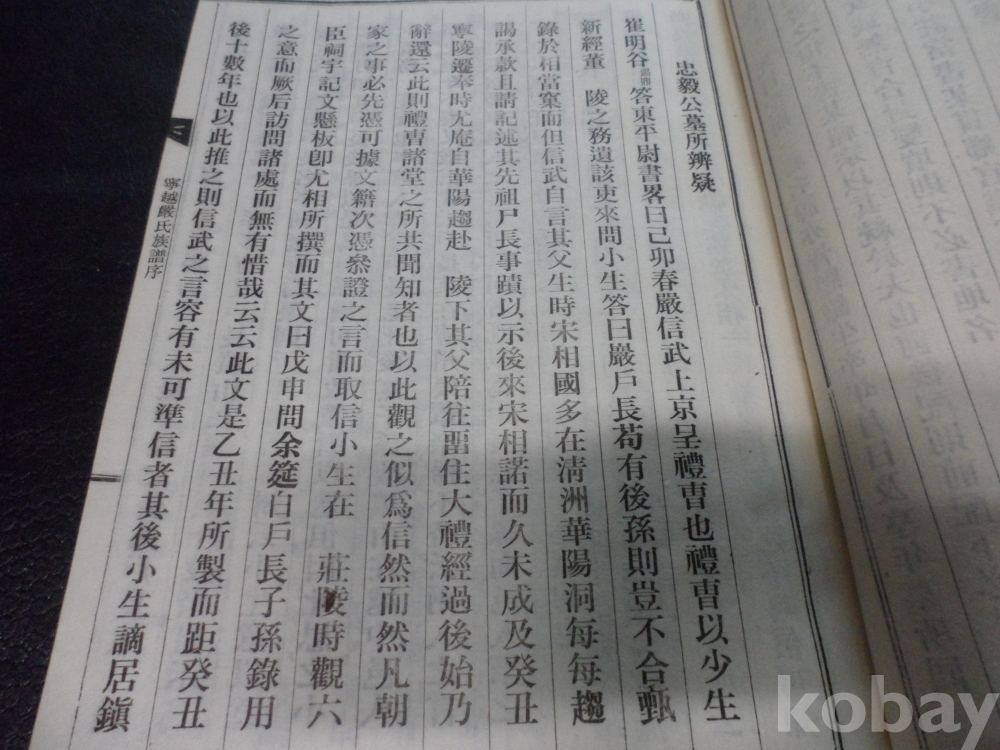 忠毅公墓所辨疑
崔明谷答東平尉書畧曰己卯春嚴信武上京呈禮曺也禮曺以少生
新經董 陵之務遺該吏來問小生答曰嚴戶長苟有後孫則豈不合甄
錄於相當窠而但信武自言其父生時宋相國多在淸洲華陽洞每每趨
謁承款且請記述其先祖尸長事蹟以示後來宋相諾而久未成及癸丑
寧陵遷奉時尤庵自華陽趨赴 陵下其父陪往畱住大禮經過後始乃
辭還云此則禮曺諸堂之所共聞知者也以此觀之似爲信然而然凡朝
家之事必先憑可據文籍次憑參證之言而取信小生在 莊陵時觀六
臣祠宇記文懸板卽尤相所撰而其文曰戊申問余筵白戶長子孫錄用
之意而厥后訪問諸處而無有惜哉云云此文是乙丑年所製而距癸丑
後十數年也以此推之則信武之言容有未可準信者其後小生謫居鎭
寧越嚴氏族譜序
kobay